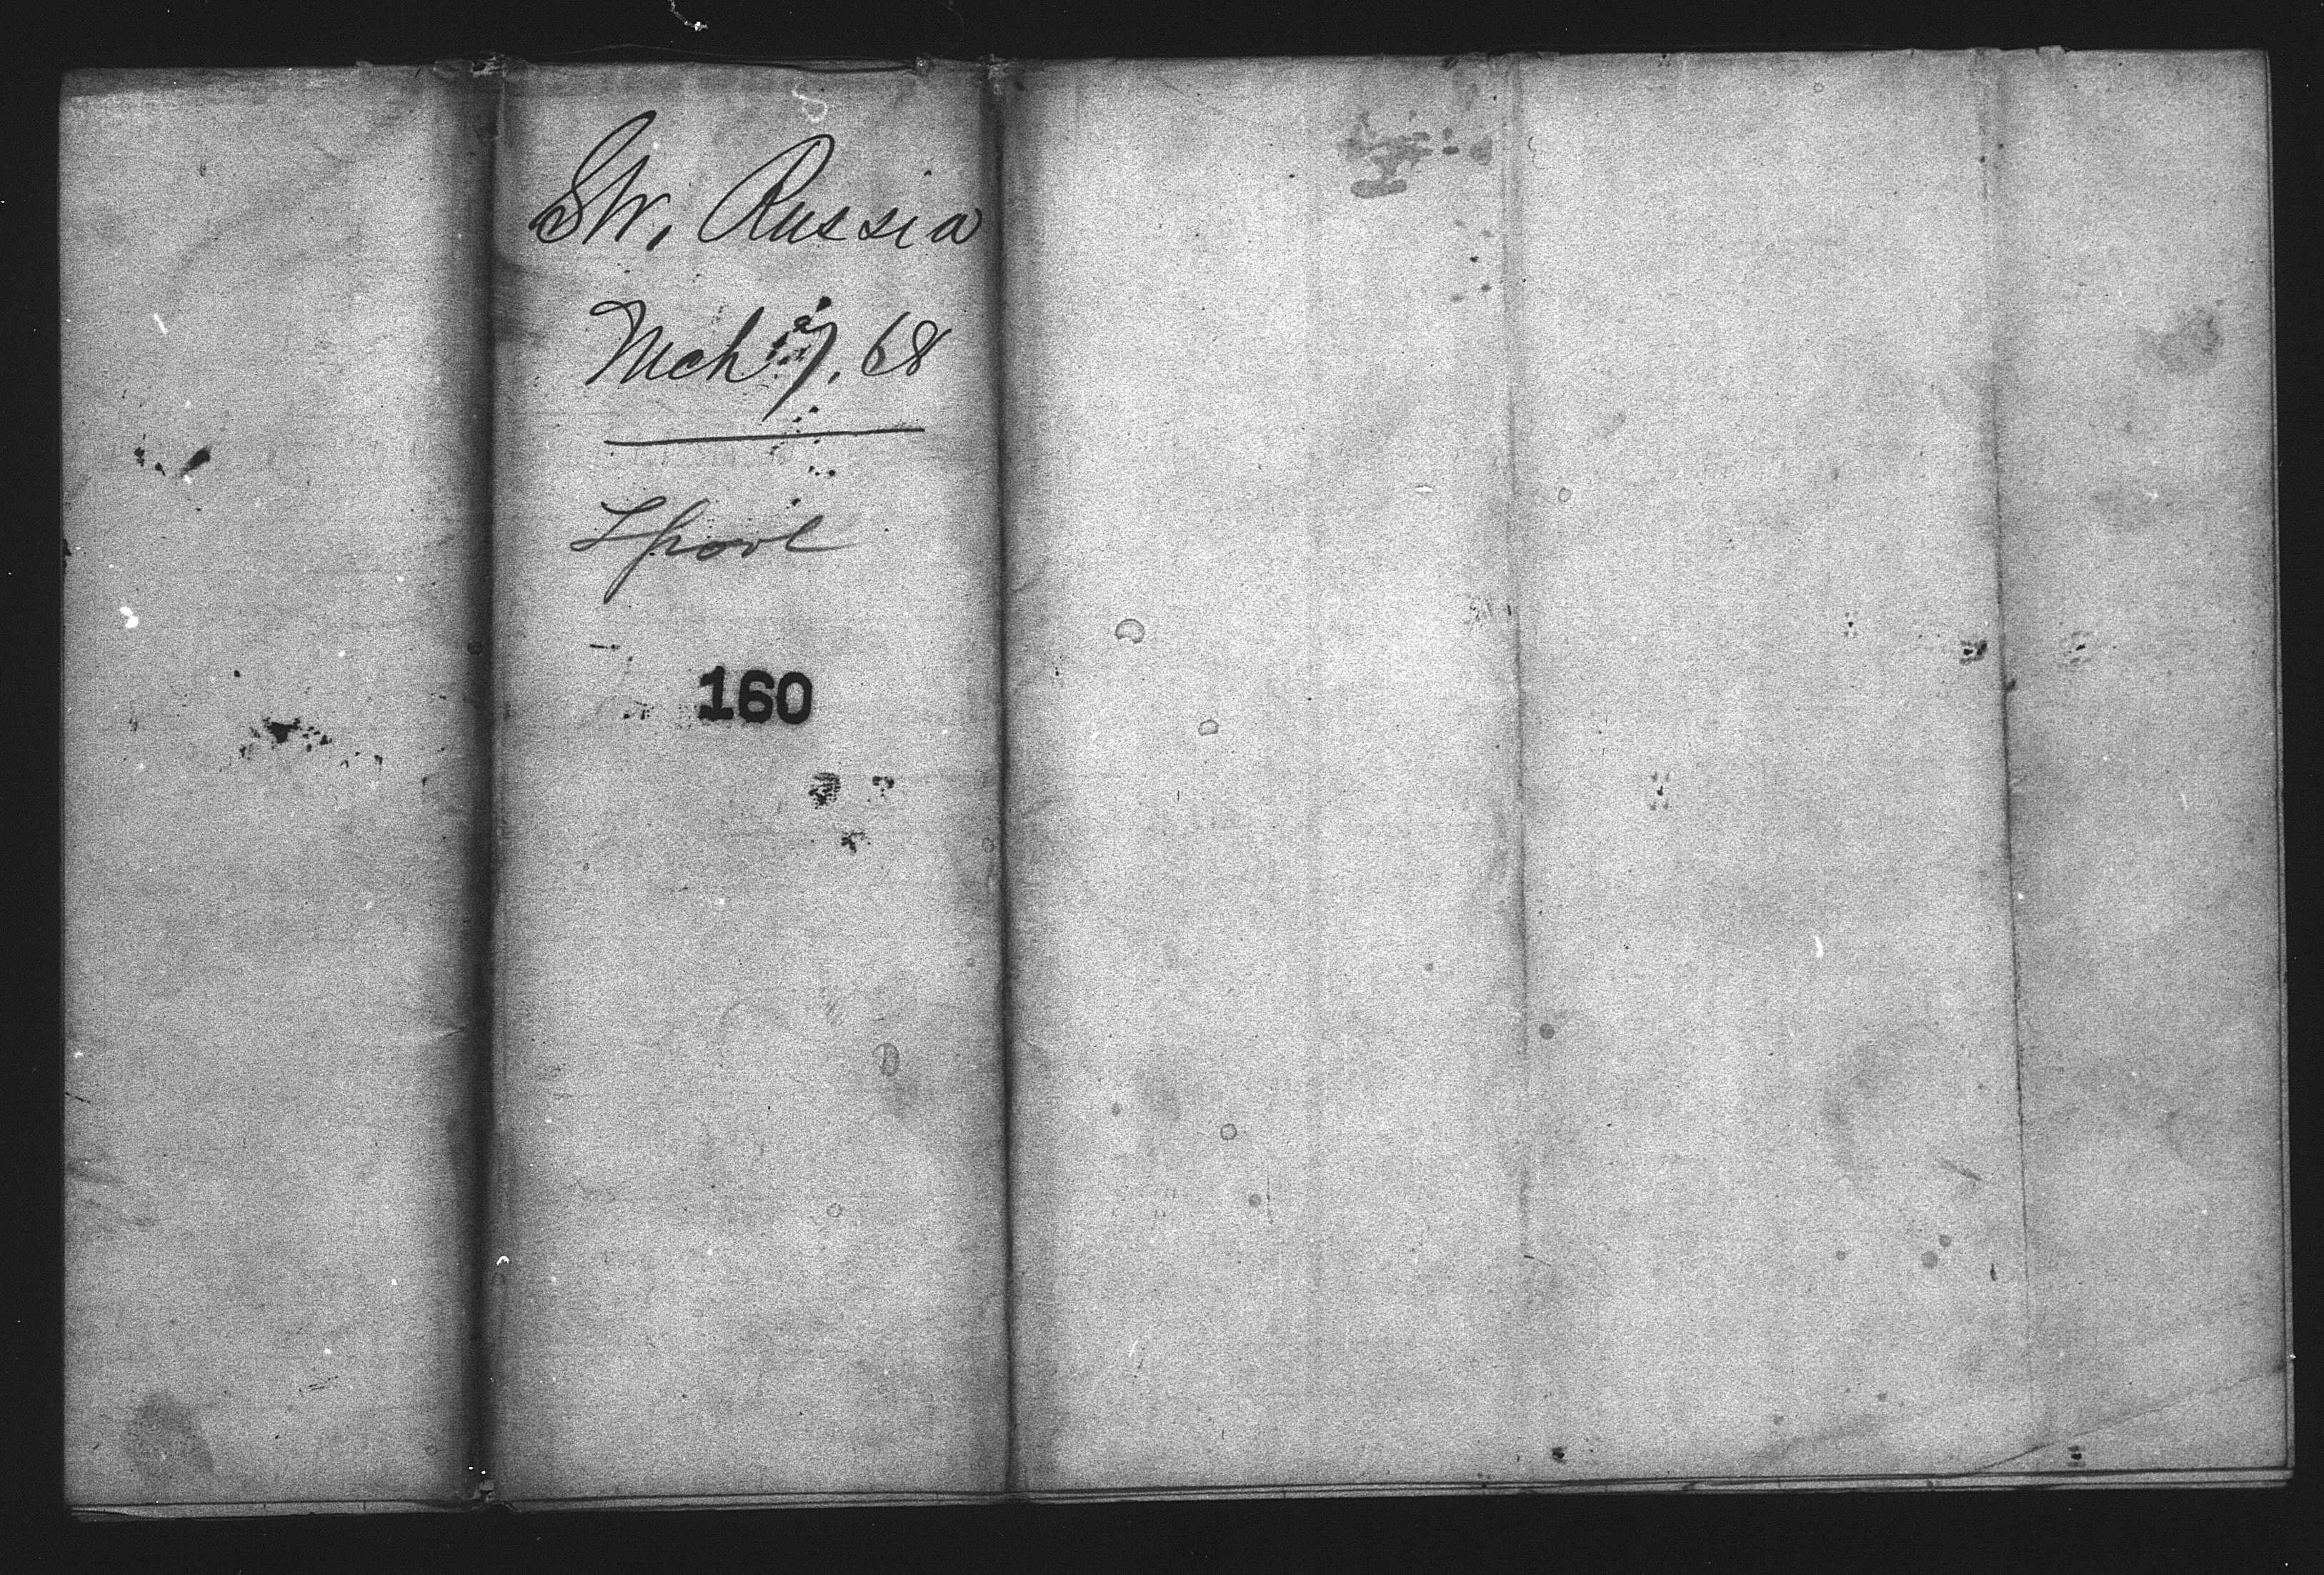 Str. Russia
Mch 7, 68
Lpool
160